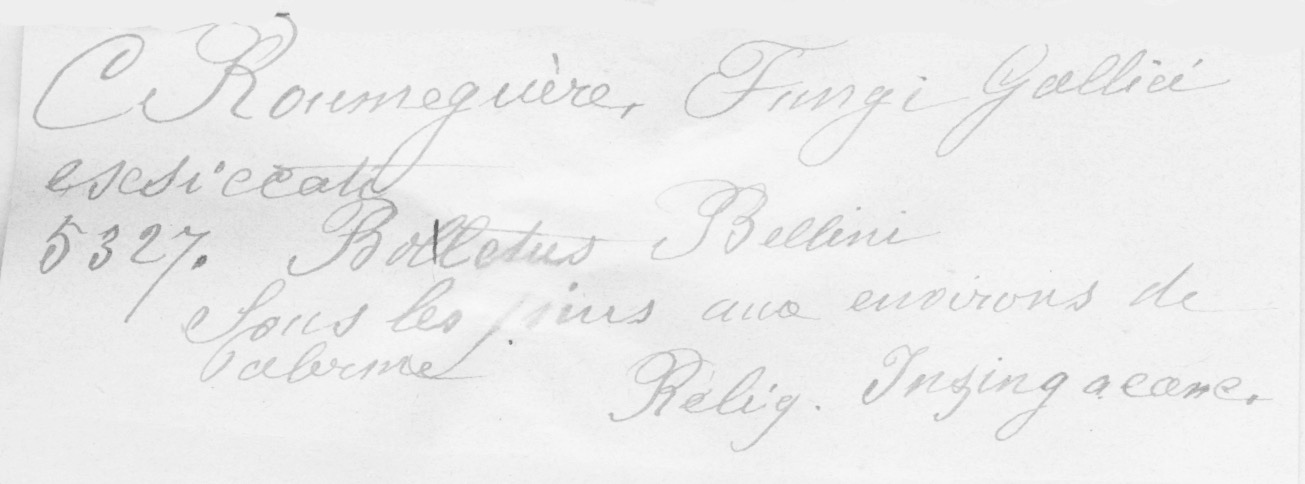 C Roumeguère, Fungi Gallici
exsiccati
5327. Boletus Bellini
Sous les pins aux environs de
Palerme
Relig. Inzingaeane.